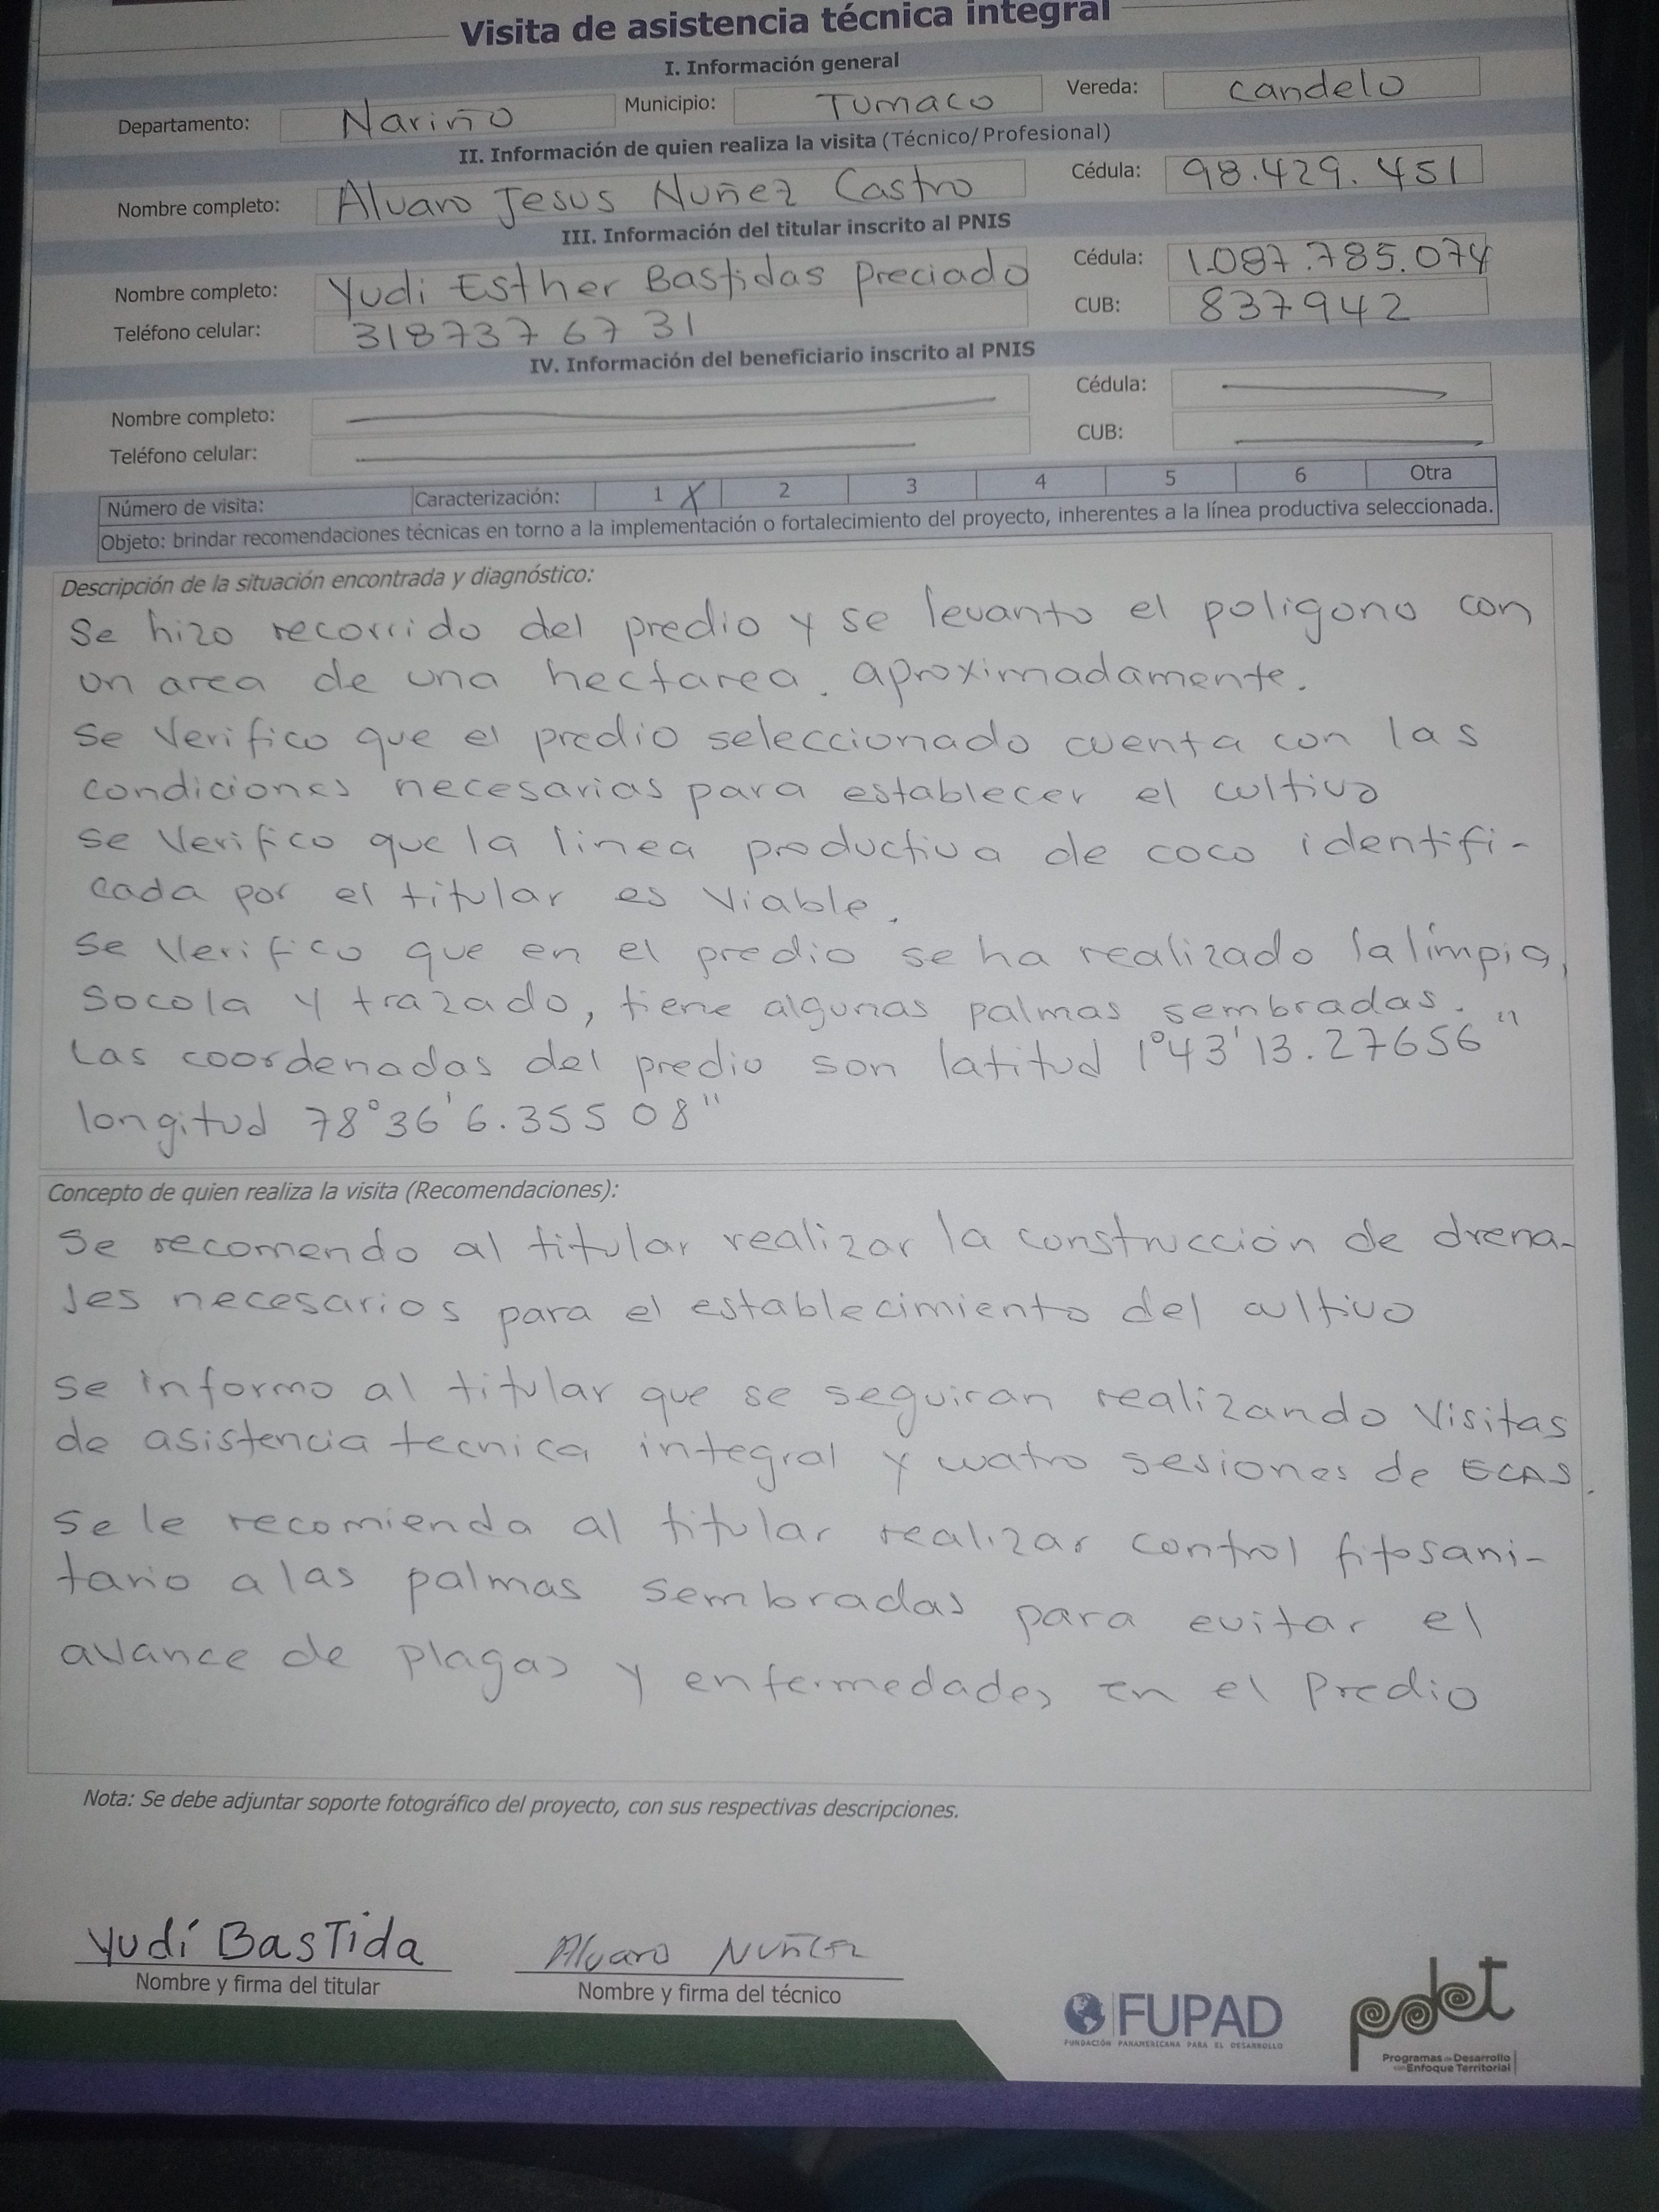 Visita de asistencia técnica integral
I. Información general
Departamento: Nariño Municipio: Tumaco Vereda: Candelo
II. Información de quien realiza la visita (Técnico/Profesional)
Nombre completo: Alvaro Jesus Nuñez Castro Cédula: 98.429.451
III. Información del titular inscrito al PNIS
Nombre completo: Yudi Esther Bastidas Preciado Cédula: 1.087.785.074
Teléfono celular: 318737 67 31 CUB: 837942
IV. Información del beneficiario inscrito al PNIS
Nombre completo: Cédula:
Teléfono celular: CUB:
Número de visita: Caracterización: 1 X 2 3 4 5 6 Otra
Objeto: brindar recomendaciones técnicas en torno a la implementación o fortalecimiento del proyecto, inherentes a la línea productiva seleccionada.
Descripción de la situación encontrada y diagnóstico:
Se hizo recorrido del predio y se levanto el poligono con
un area de una hectarea. aproximadamente.
Se Verifico que el predio seleccionado cuenta con las
condiciones necesarias para establecer el cultivo
Se Verifico que la linea productiva de coco identifi-
cada por el titular es Viable.
Se Verifico que en el predio se ha realizado la limpia,
Socola y trazado, tiene algunas palmas sembradas.
Las coordenadas del predio son latitud 1°43'13.27656"
longitud 78°36'6.35508"
Concepto de quien realiza la visita (Recomendaciones):
Se recomendo al titular realizar la construcción de drena-
jes necesarios para el establecimiento del cultivo
se informo al titular que se seguiran realizando Visitas
de asistencia tecnica integral y cuatro sesiones de ECAS.
Se le recomienda al titular realizar control fitosani-
tario a las palmas sembradas para evitar el
avance de plagas y enfermedades en el Predio
Nota: Se debe adjuntar soporte fotográfico del proyecto, con sus respectivas descripciones.
Yudí BasTida Alvaro Nuñez
Nombre y firma del titular Nombre y firma del técnico
FUPAD
FUNDACIÓN PANAMERICANA PARA EL DESARROLLO
pdet
Programas de Desarrollo
con Enfoque Territorial